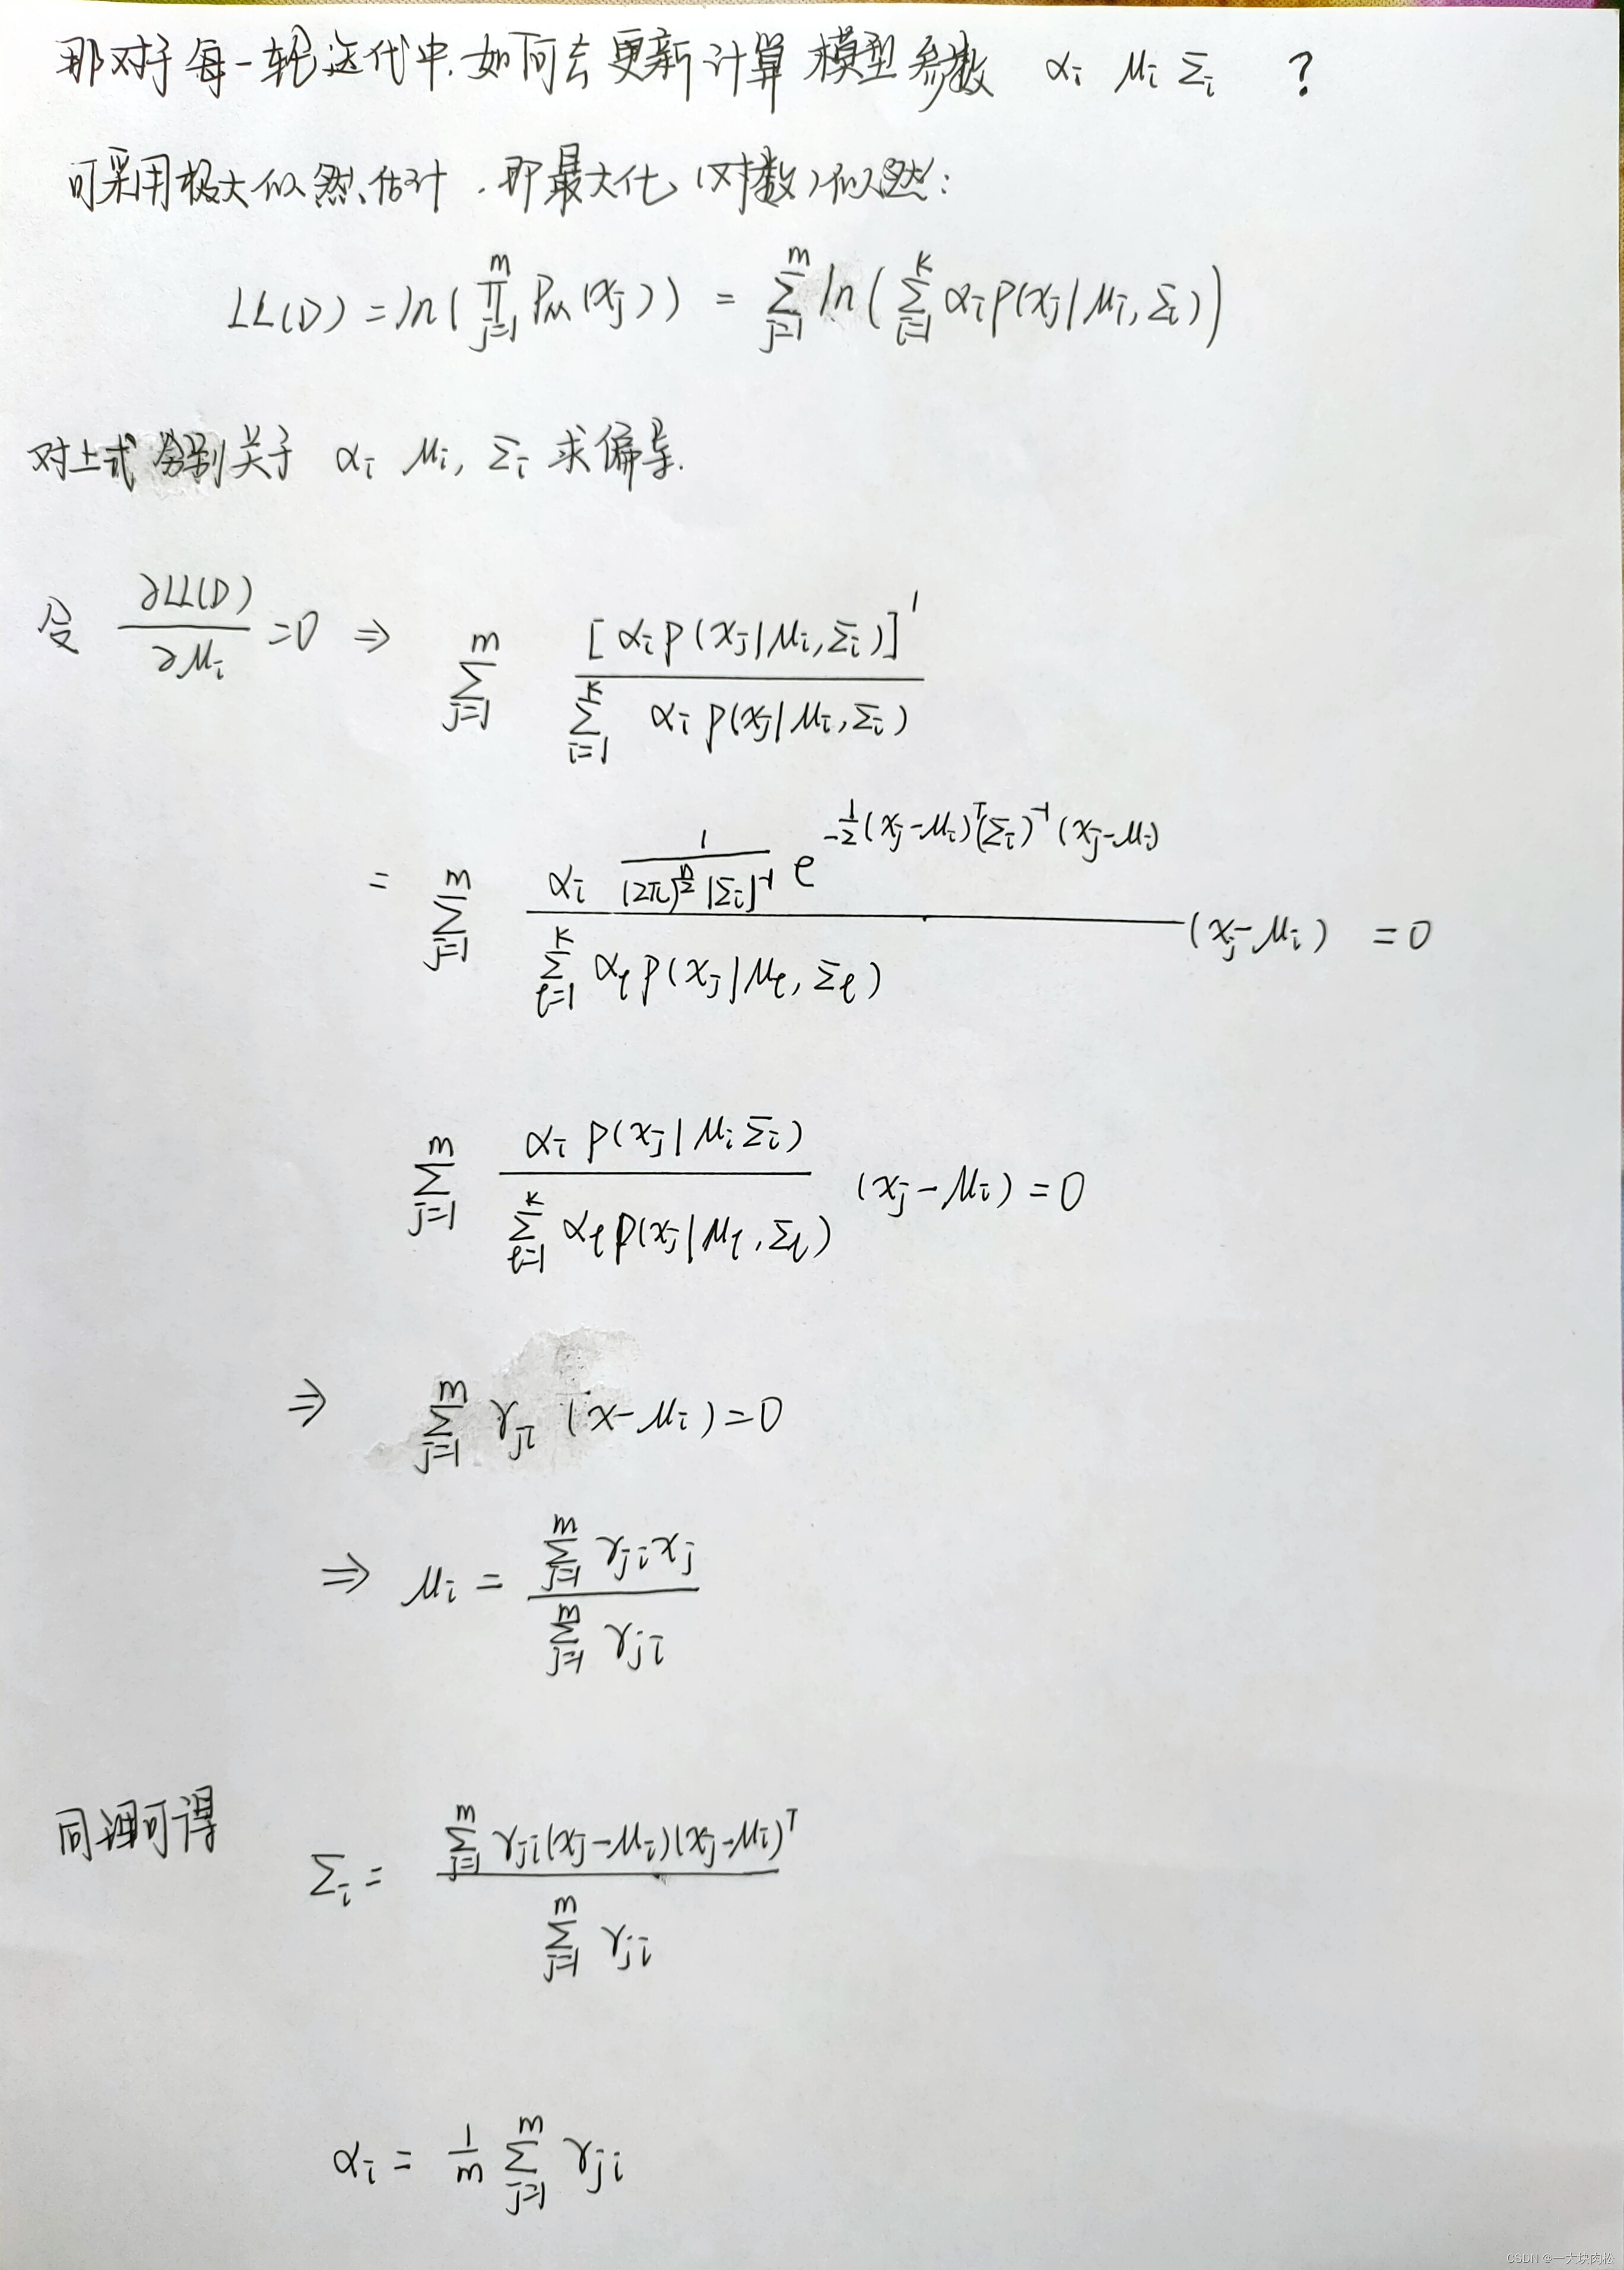 那对于每一轮迭代中.如何去更新计算模型参数 αi μi Σi ?
可采用极大似然估计.即最大化(对数)似然:
LL(D) = ln(∏_{j=1}^{m} P_M(xj)) = Σ_{j=1}^{m} ln(Σ_{i=1}^{k} αi p(xj|μi,Σi))
对上式分别关于 αi μi, Σi 求偏导.
令 ∂LL(D)/∂μi =0 ⇒ Σ_{j=1}^{m} [αi p(xj|μi,Σi)]' / Σ_{i=1}^{k} αi p(xj|μi,Σi)
= Σ_{j=1}^{m} αi 1/((2π)^{n/2}|Σi|^{-1}) e^{-1/2(xj-μi)^T(Σi)^{-1}(xj-μi)} / Σ_{ℓ=1}^{k} αℓ p(xj|μℓ,Σℓ) (xj-μi) =0
Σ_{j=1}^{m} αi p(xj|μi Σi) / Σ_{ℓ=1}^{k} αℓ p(xj|μℓ,Σℓ) (xj-μi)=0
⇒ Σ_{j=1}^{m} γji (x-μi)=0
⇒ μi = Σ_{j=1}^{m} γji xj / Σ_{j=1}^{m} γji
同理可得 Σi = Σ_{j=1}^{m} γji(xj-μi)(xj-μi)^T / Σ_{j=1}^{m} γji
αi = 1/m Σ_{j=1}^{m} γji
CSDN @一大块肉松